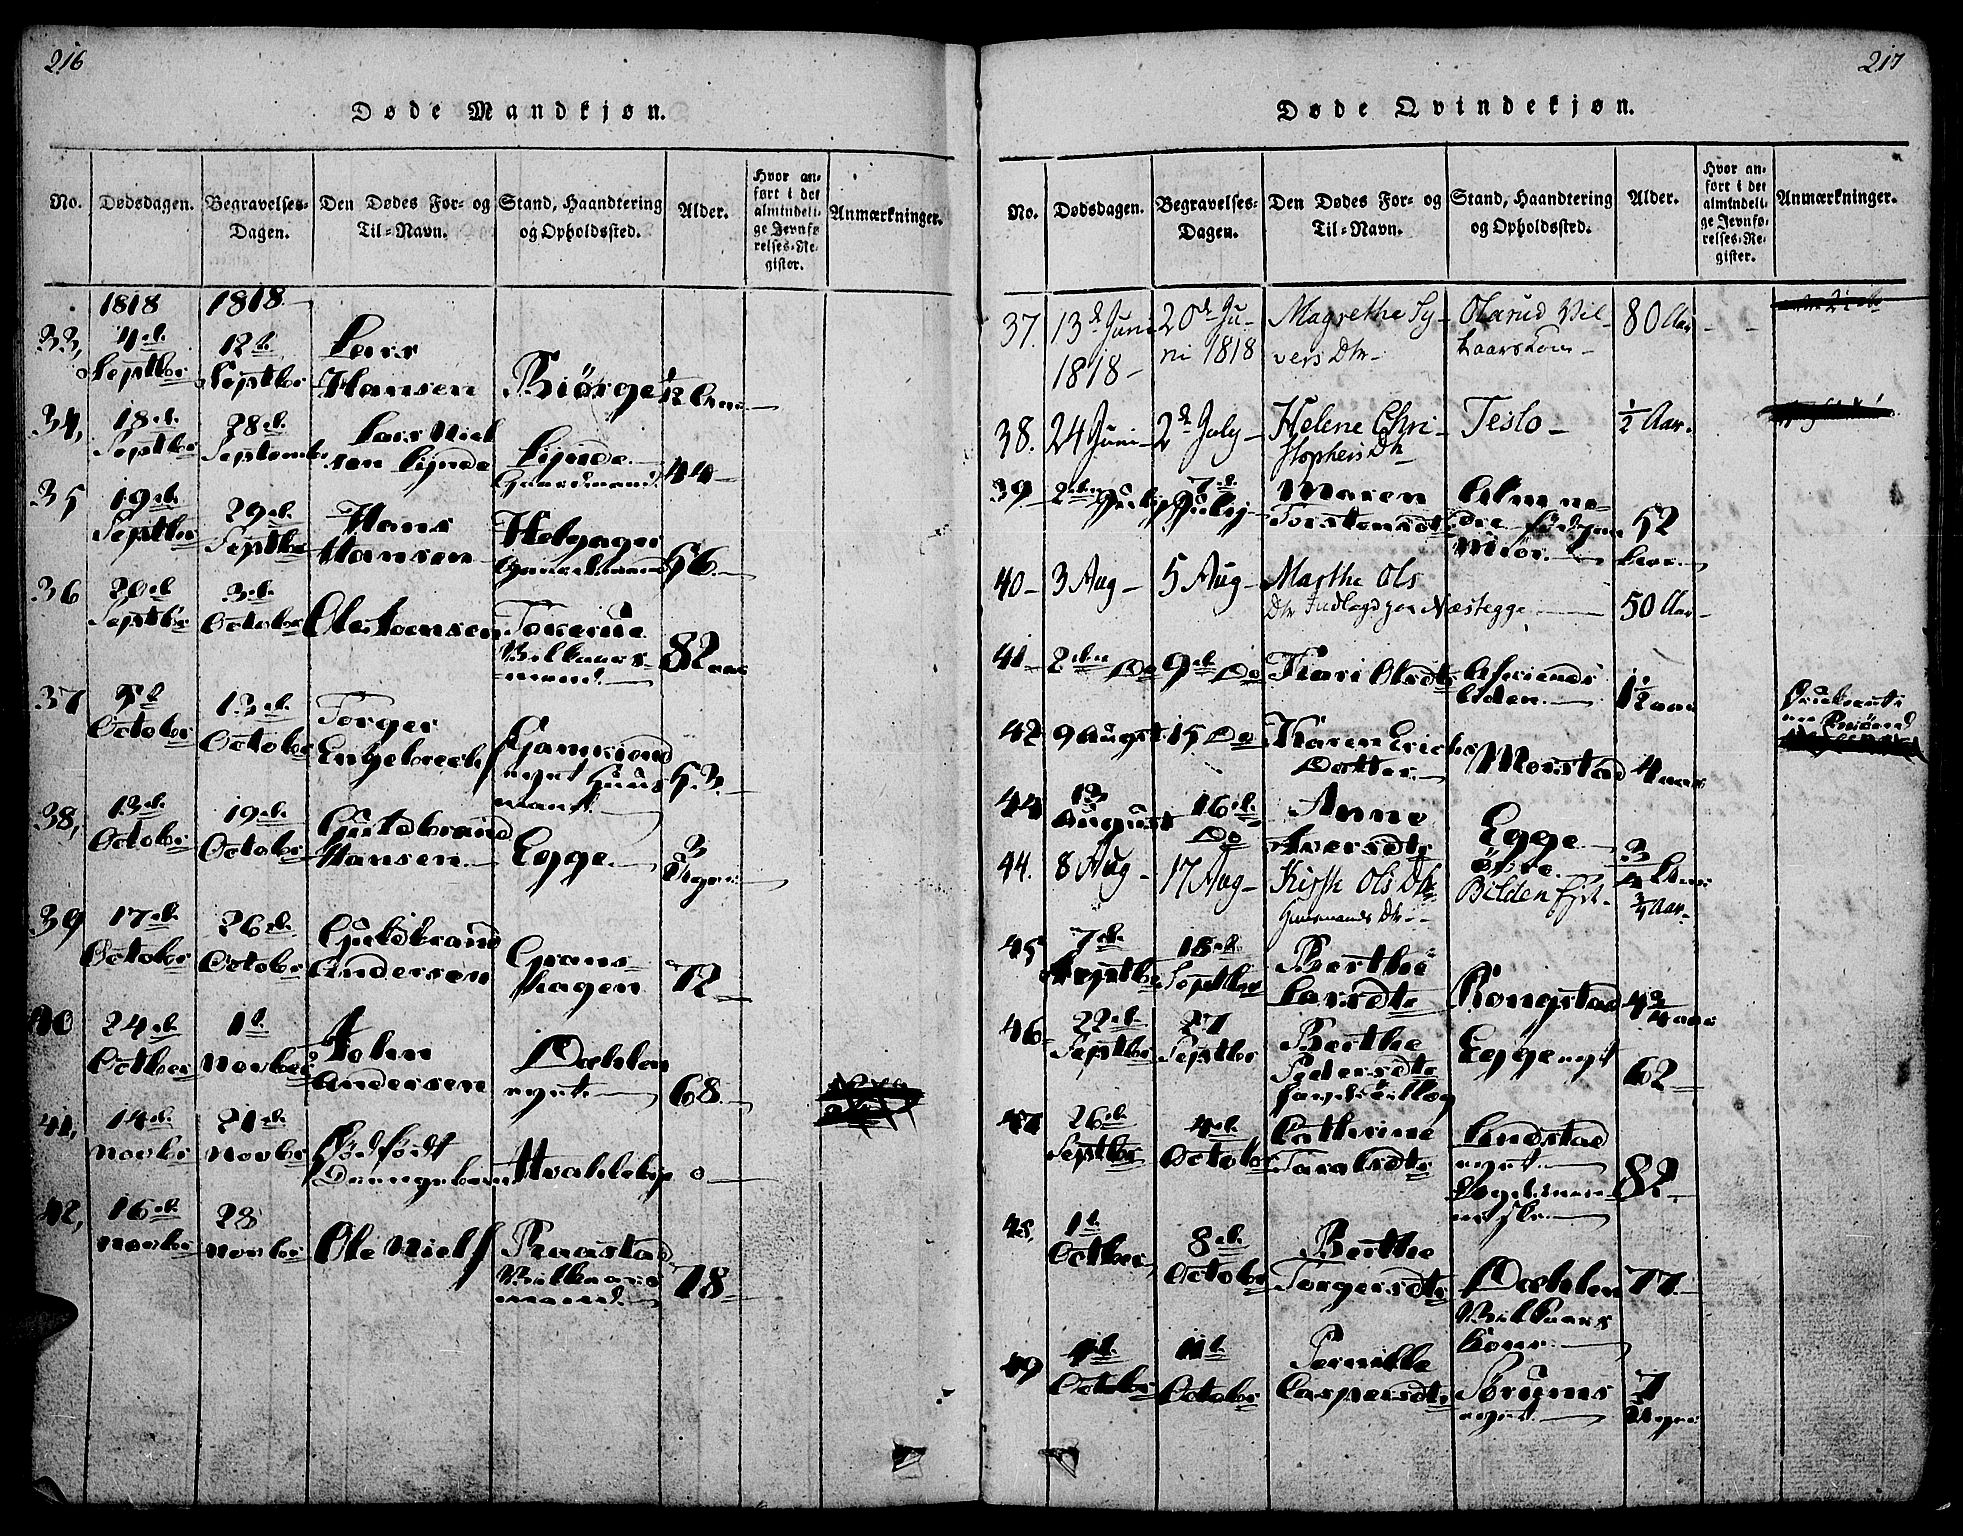 216
Døde Mandkjøn.
No. Dødsdagen. Begravelses-Dagen. Den Dødes For- og Til-Navn. Stand, Haandtering og Opholdssted. Alder. Hvor anført i det almindelige Jevnførelses-Register. Anmærkninger.
1818 1818
33, 4de Septbr 12te Septbr Lars Hansen Biørge
34, 18de Septbr 28de Septembr Lars Nielsen Lynde Lynde Gaardmand 44
35 19de Septbr 29de Septbr Hans Hansen Helgager 56
36 20de Septbr 3de October Ole Toensen Vilkaarsmand 82 aar
37 5te October 13de October Torger Engebrechs eyet Huusmand 53
38, 13de October 19de October Guldbrand Hansen Egge 3 Uger
39 17de October 26de October Guldbrand Andersen Granshagen 72
40 24de Octber 1te Novber John Andersen Dæhlen eyet 68
41, 14de Novbr 21de Novbr Dødfødt Drengebarn Hvaleby 0
42, 16de Novbr 28 Novbr Ole Niels Raastad Vilkaarsmand 78
217
Døde Qvindekjøn.
No. Dødsdagen. Begravelses-Dagen. Den Dødes For- og Til-Navn. Stand, Haandtering og Opholdssted. Alder. Hvor anført i det almindelige Jevnførelses-Register. Anmærkninger.
37. 13de Juni 1818 20de Juni 1818 Magrethe Syvers Dtr Olsrud Vilkaarskone 80 Aar
38. 24 Juni 2de July Helene Christophers Dtr Teslo ½ Aar
39 2den July 7de July Maren Torstensdtr 52 Aar
40 3 Aug 5 Aug Marthe Ols Dtr Indlagd paa Næstegge 50 Aar
41 2den Do 9de Do Kari Olsdtr 1½ aar
42 9 Augst 15 Do Karen Erichs Datter Morstad 4 aar
44 13 August 16de Do Anne Iversdtr Egge øvre
44. 8 Aug 17 Aug Kirsti Ols Dtr Huusmands Dtr Bilden Eyet ¾ Aar
45 7de Septbr 18de Septbr Berthe Larsdtr Kongstad 4¾ aar
46 22de Septbr 27 Septbr Berthe Pedersdtr Egge eyet 62
47 26de Septbr 4de October Cathrine Taralsdtr Lindstad eyet 82
48, 1te Octber 8de October Berthe Torgersdtr Dæhlen Vilkaars kone 77
49 4de October 11te October Pernille Caspersdtr Sørums eyet 7 Uger